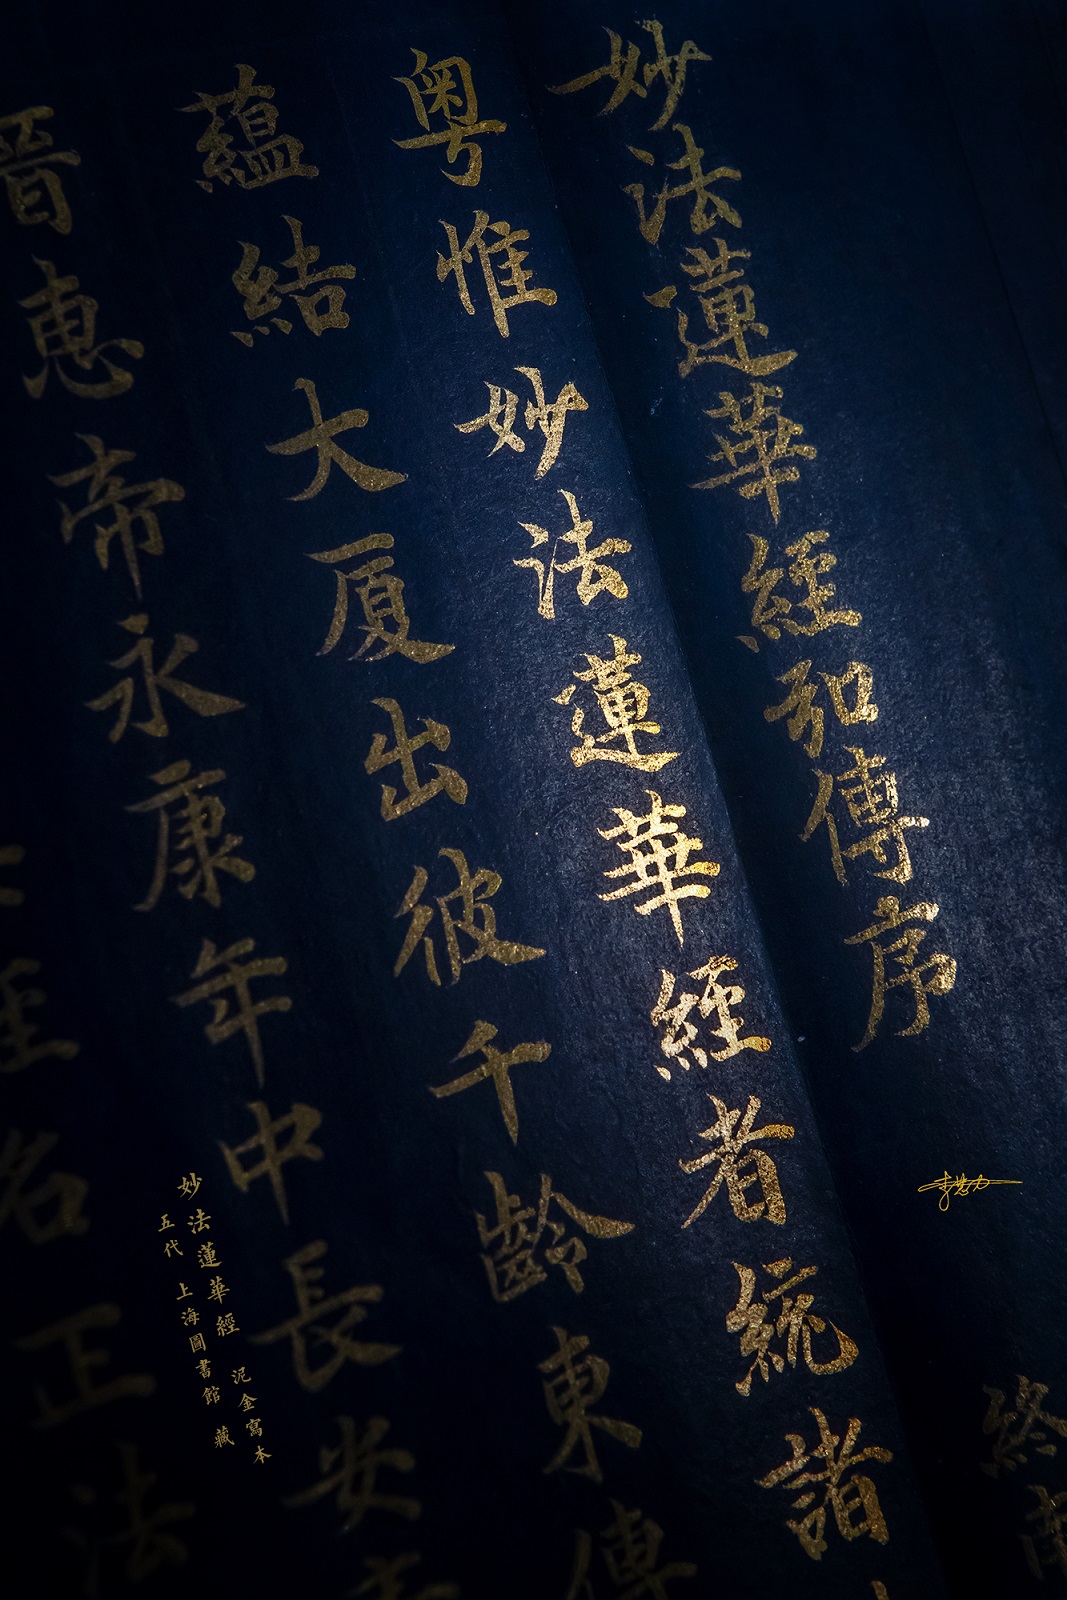 妙法蓮華經弘傳序
終南
粵惟妙法蓮華經者統諸
蘊結大厦出彼千齡東傳
晉惠帝永康年中長安
經名正法
妙法蓮華經 泥金寫本
五代 上海圖書館 藏